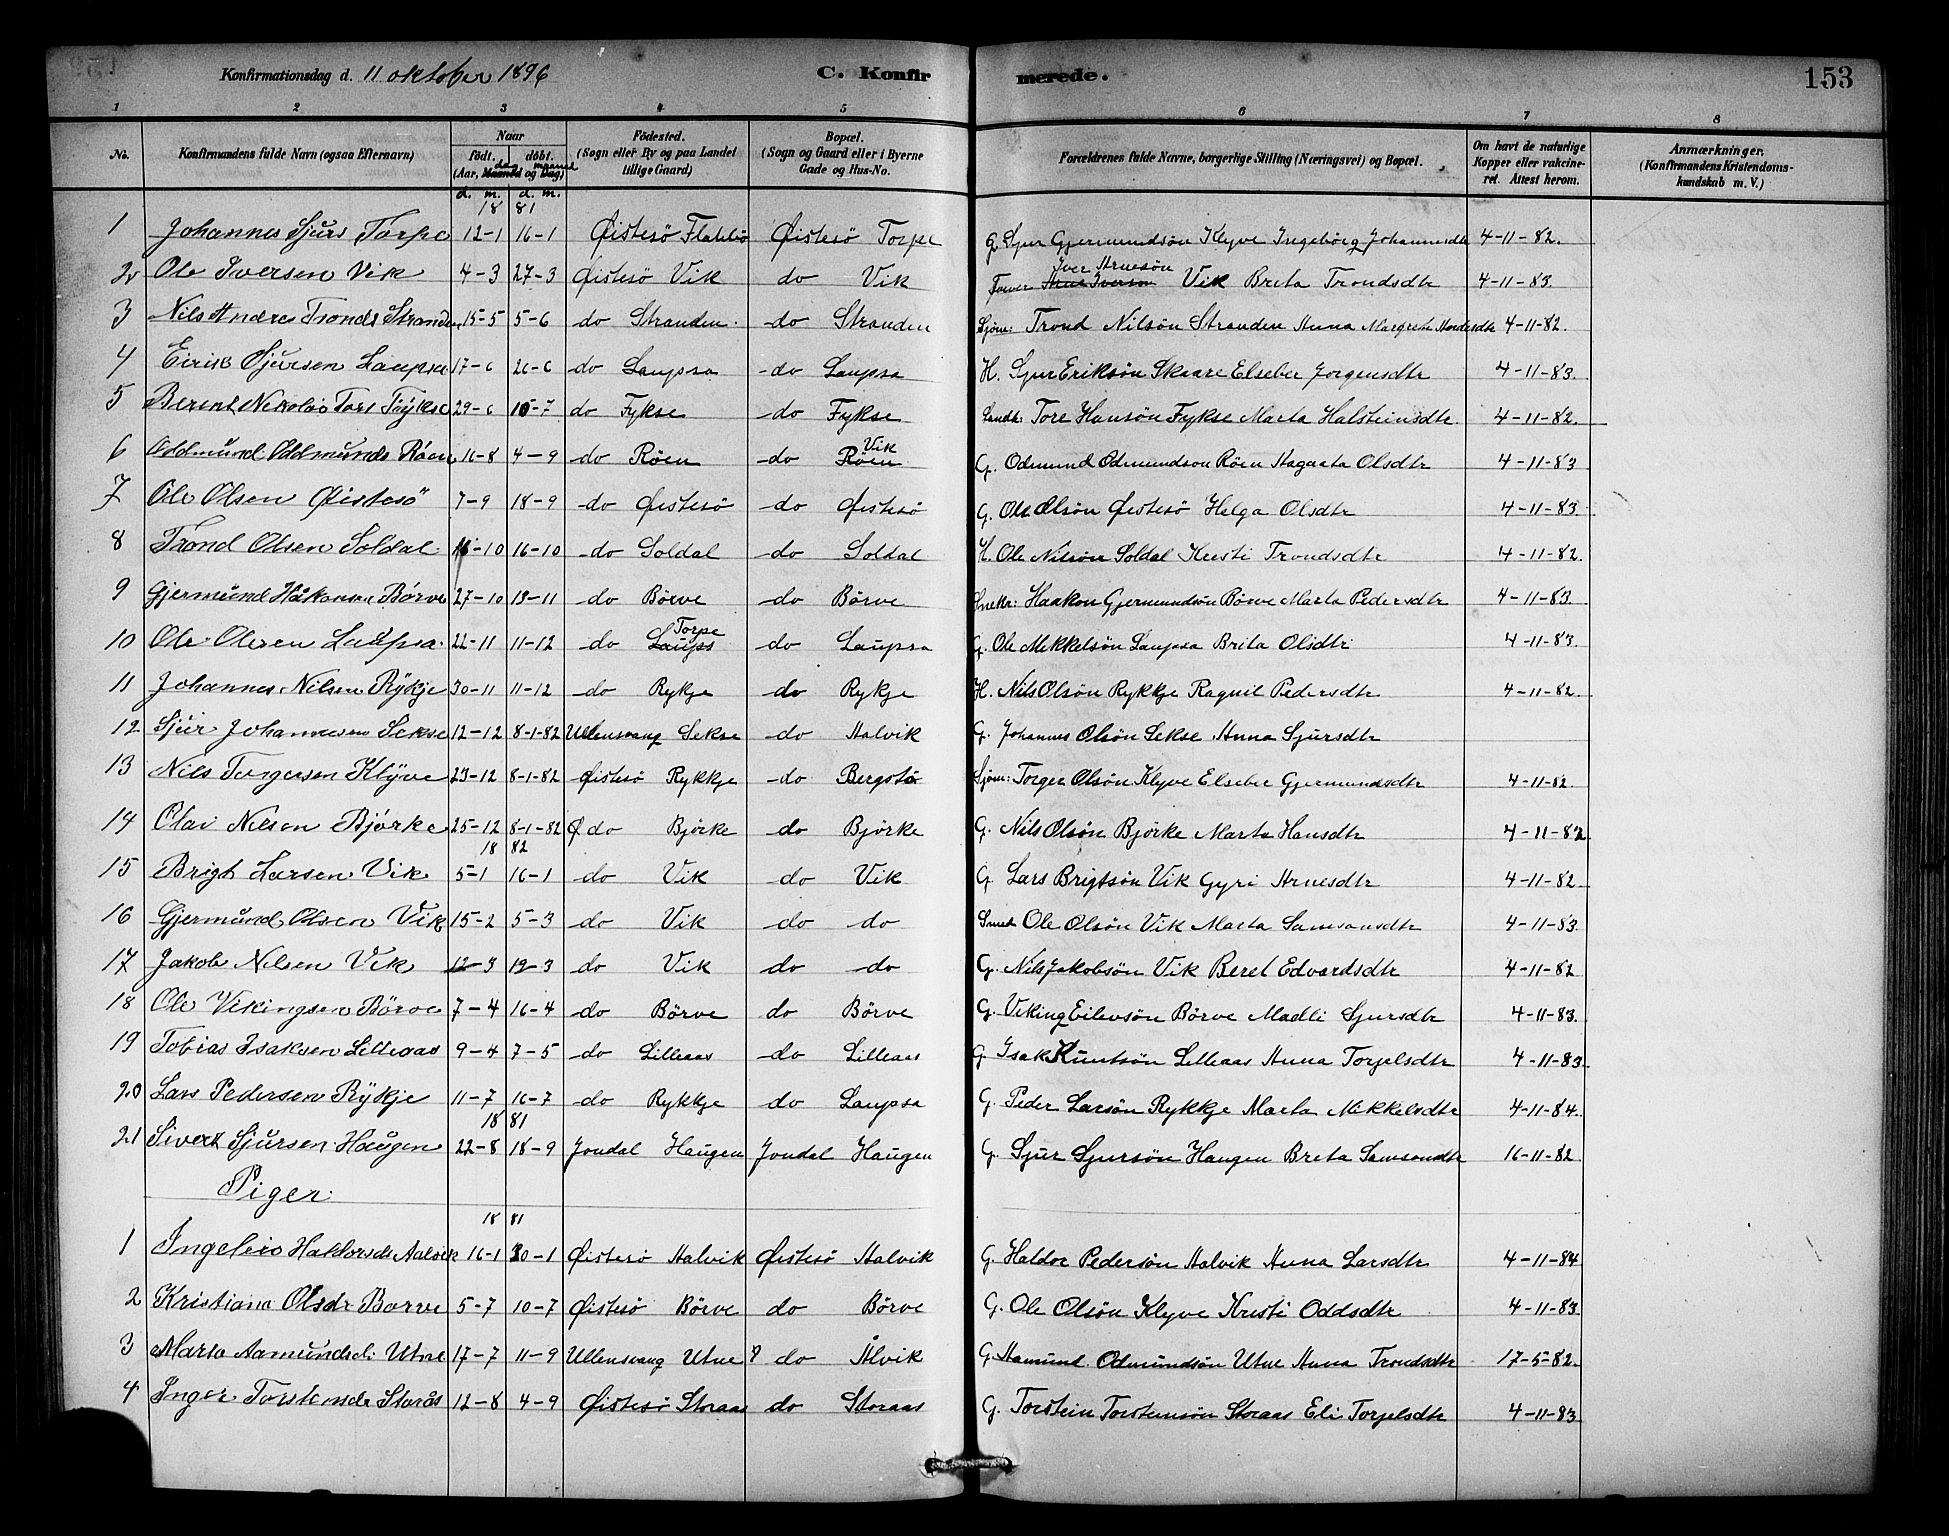 Konfirmationsdag d. 11 oktober 1896 C. Konfirmerede. 153
1 2 3 4 5 6 7 8
No. Konfirmandens fulde Navn (ogsaa Efternavn) Naar født. døbt. (Aar, Maaned og Dag) dag maaned Födested. (Sogn eller By og paa Landet tillige Gaard) Bopæl. (Sogn og Gaard eller i Byerne Gade og Hus-No. Forældrenes fulde Navne, borgerlige Stilling (Næringsvei) og Bopæl. Om havt de naturlige Kopper eller vakcineret. Attest herom. Anmærkninger. (Konfirmandens Kristendomskundskab m. V.)
d. m. d. m.
18 81
1 Johannes Sjurs Torpe 12-1 16-1 Øistesö Flatebö Øistesö Torpe G. Sjur Gjermundsön Klyve Ingebörg Johannesdtr 4-11-82.
2 Ole Iversen Vik 4-3 27-3 Øistesö Vik do Vik Iver Arnesön Arne Iverson Vik Brita Trondsdtr 4-11-83.
3 Nils Andreas Tronds Stranden 15-5 5-6 do Stranden do Stranden Sjöm: Trond Nilsön Stranden Anna Margreta 4-11-82.
4 Eirik Sjursen Laupsa 17-6 26-6 do Laupsa do Laupsa H. Sjur Eriksön Skaare Elseber Jorgensdtr 4-11-83.
5 Berent Nikolai Tors Fykse 29-6 10-7 do Fykse do Fykse Tore Hansön Fykse Marta Halsteinsdtr. 4-11-82.
6 Oddmund Oddmunds Röen 16-8 4-9 do Röen do Röen Vik G. Odmund Odmundson Röen Aagaata Olsdtr 4-11-83
7 Ole Olsen Øistesö 7-9 18-9 do Øistesö do Øistesö G. Ole Olsön Øistesö Helga Olsdtr 4-11-83
8 Trond Olsen Soldal 16-10 do Soldal do Soldal H. Ole Nilson Soldal Kristi Trondsdtr 4-11-82.
9 Gjermund Håkonsen Börve 27-10 13-11 do Börve do Börve Snekr: Haakon Gjermundsön Börve Marta Pedersdtr 4-11-83.
10 Ole Olsen Laupsa 22-11 11-12 do Laupss Torpe do Laupsa G. Ole Mikkelsön Laupsa Brita Olsdtr 4-11-83.
11 Johannes Nilsen Rykje 30-11 11-12 do Rykje do Rykje H. Nils Olsön Rykkje Ragnil Pedersdtr 4-11-82.
12 Sjur Johannesen Sekse 12-12 8-1-82 Ullensvang Sekse do Aalvik G. Johannes Olsön Sekse Anna Sjursdtr
13 Nils Torgersen Klyve 23-12 8-1-82 Øistesö Rykkje do Bergstö Sjöm: Torger Olsön Klyve Elseber Gjermundsdtr 4-11-82.
14 Olai Nilsen Bjørke 25-12 8-1-82 Ø do Bjørke do Bjørke G. Nils Olsön Bjørke Marta Hansdtr 4-11-82
18 82
15 Brigt Larsen Vik 5-1 16-1 do Vik do Vik G. Lars Brigtsön Vik Gyri Arnesdtr 4-11-82.
16 Gjermund Olsen Vik 15-2 5-3 do Vik do do Smed Ole Olsön Vik Marta Samsonsdtr 4-11-83.
17 Jakob Nilsen Vik 12-3 19-3 do Vik do do G. Nils Jakobsön Vik Beret Edvardsdtr 4-11-82
18 Ole Vikingsen Börve 7-4 16-4 do Börve do Börve G. Viking Eilevsön Börve Madli Sjursdtr 4-11-83.
19 Tobias Isaksen Lilleaas 9-4 7-5 do Lilleaas do Lilleaas G Isak Knutsön Lilleaas Anna Torgelsdtr 4-11-83.
20 Lars Pedersen Rykje 11-7 16-7 do Rykkje do Laupsa G. Peder Larsön Rykkje Marta Mikkelsdtr 4-11-84.
18 81
21 Sivert Sjursen Haugen 22-8 18-9 Jondal Haugen Jondal Haugen G. Sjur Sjursön Haugen Brita Samsondtr 16-11-82.
Piger.
18 81
1 Ingeleiv Haldorsdr Aalvik 16-1 30-1 Øistesö Aalvik Øistesö Aalvik G. Haldor Pedersön Aalvik Anna Larsdtr 4-11-84
2 Kristiana Olsdr Borve 5-7 10-7 Øistesö Börve do Börve G. Ole Olsön Klyve Kristi Oddsdtr 4-11-83.
3 Marta Aamundsdr Utne 17-7 11-9 Ullensvang Utne ? do Ålvik G. Aamund Odmundsön Utne Anna Trondsdtr 17-5-82.
4 Inger Torsteinsdr Storås 12-8 4-9 Øistesö Storaas do Storaas G. Torstein Torsteinsön Storaas Eli Torgelsdtr 4-11-83